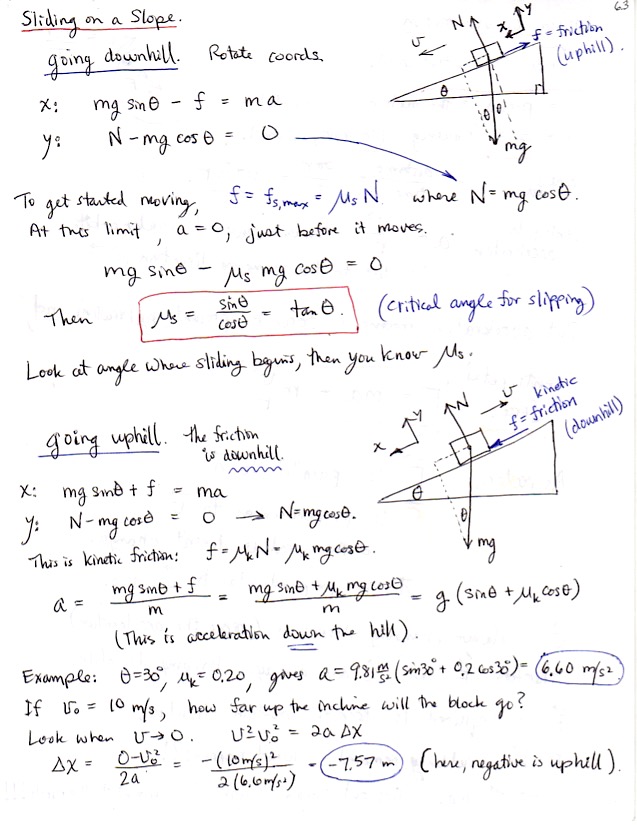 63
Sliding on a Slope.
going downhill. Rotate coords.
x: mg sinθ - f = ma
y: N - mg cosθ = 0
N
y
x
v
f = friction
(uphill).
θ
θ
θ
mg
To get started moving, f = fs,max = μs N where N = mg cosθ.
At this limit, a = 0, just before it moves.
mg sinθ - μs mg cosθ = 0
Then μs = sinθ/cosθ = tanθ. (critical angle for slipping)
Look at angle where sliding begins, then you know μs.
going uphill. the friction
is downhill.
x: mg sinθ + f = ma
y: N - mg cosθ = 0 → N = mg cosθ.
y
x
N
v
kinetic
f = friction
(downhill)
θ
θ
mg
This is kinetic friction: f = μk N = μk mg cosθ.
a = (mg sinθ + f)/m = (mg sinθ + μk mg cosθ)/m = g (sinθ + μk cosθ)
(This is acceleration down the hill).
Example: θ = 30°, μk = 0.20, gives a = 9.81 m/s² (sin30° + 0.2 cos30°) = 6.60 m/s²
If v₀ = 10 m/s, how far up the incline will the block go?
Look when v → 0. v² - v₀² = 2a Δx
Δx = (0 - v₀²)/2a = -(10 m/s)²/2(6.6 m/s²) = -7.57 m (here, negative is uphill).